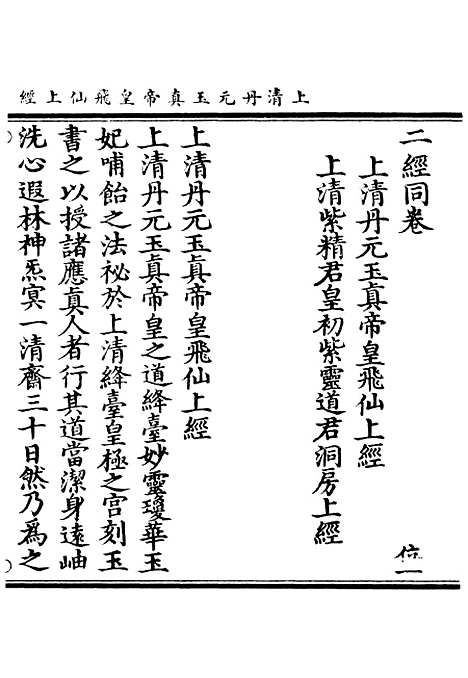 上清丹元玉真帝皇飛仙上經
二經同卷
上清丹元玉真帝皇飛仙上經
上清紫精君皇初紫靈道君洞房上經
位一
上清丹元玉真帝皇飛仙上經
上清丹元玉真帝皇之道絳臺妙靈瓊華玉
妃哺飴之法祕於上清絳臺皇極之宮刻玉
書之以授諸應真人者行其道當潔身遠岫
洗心遐林神炁寂一清齋三十日然乃爲之